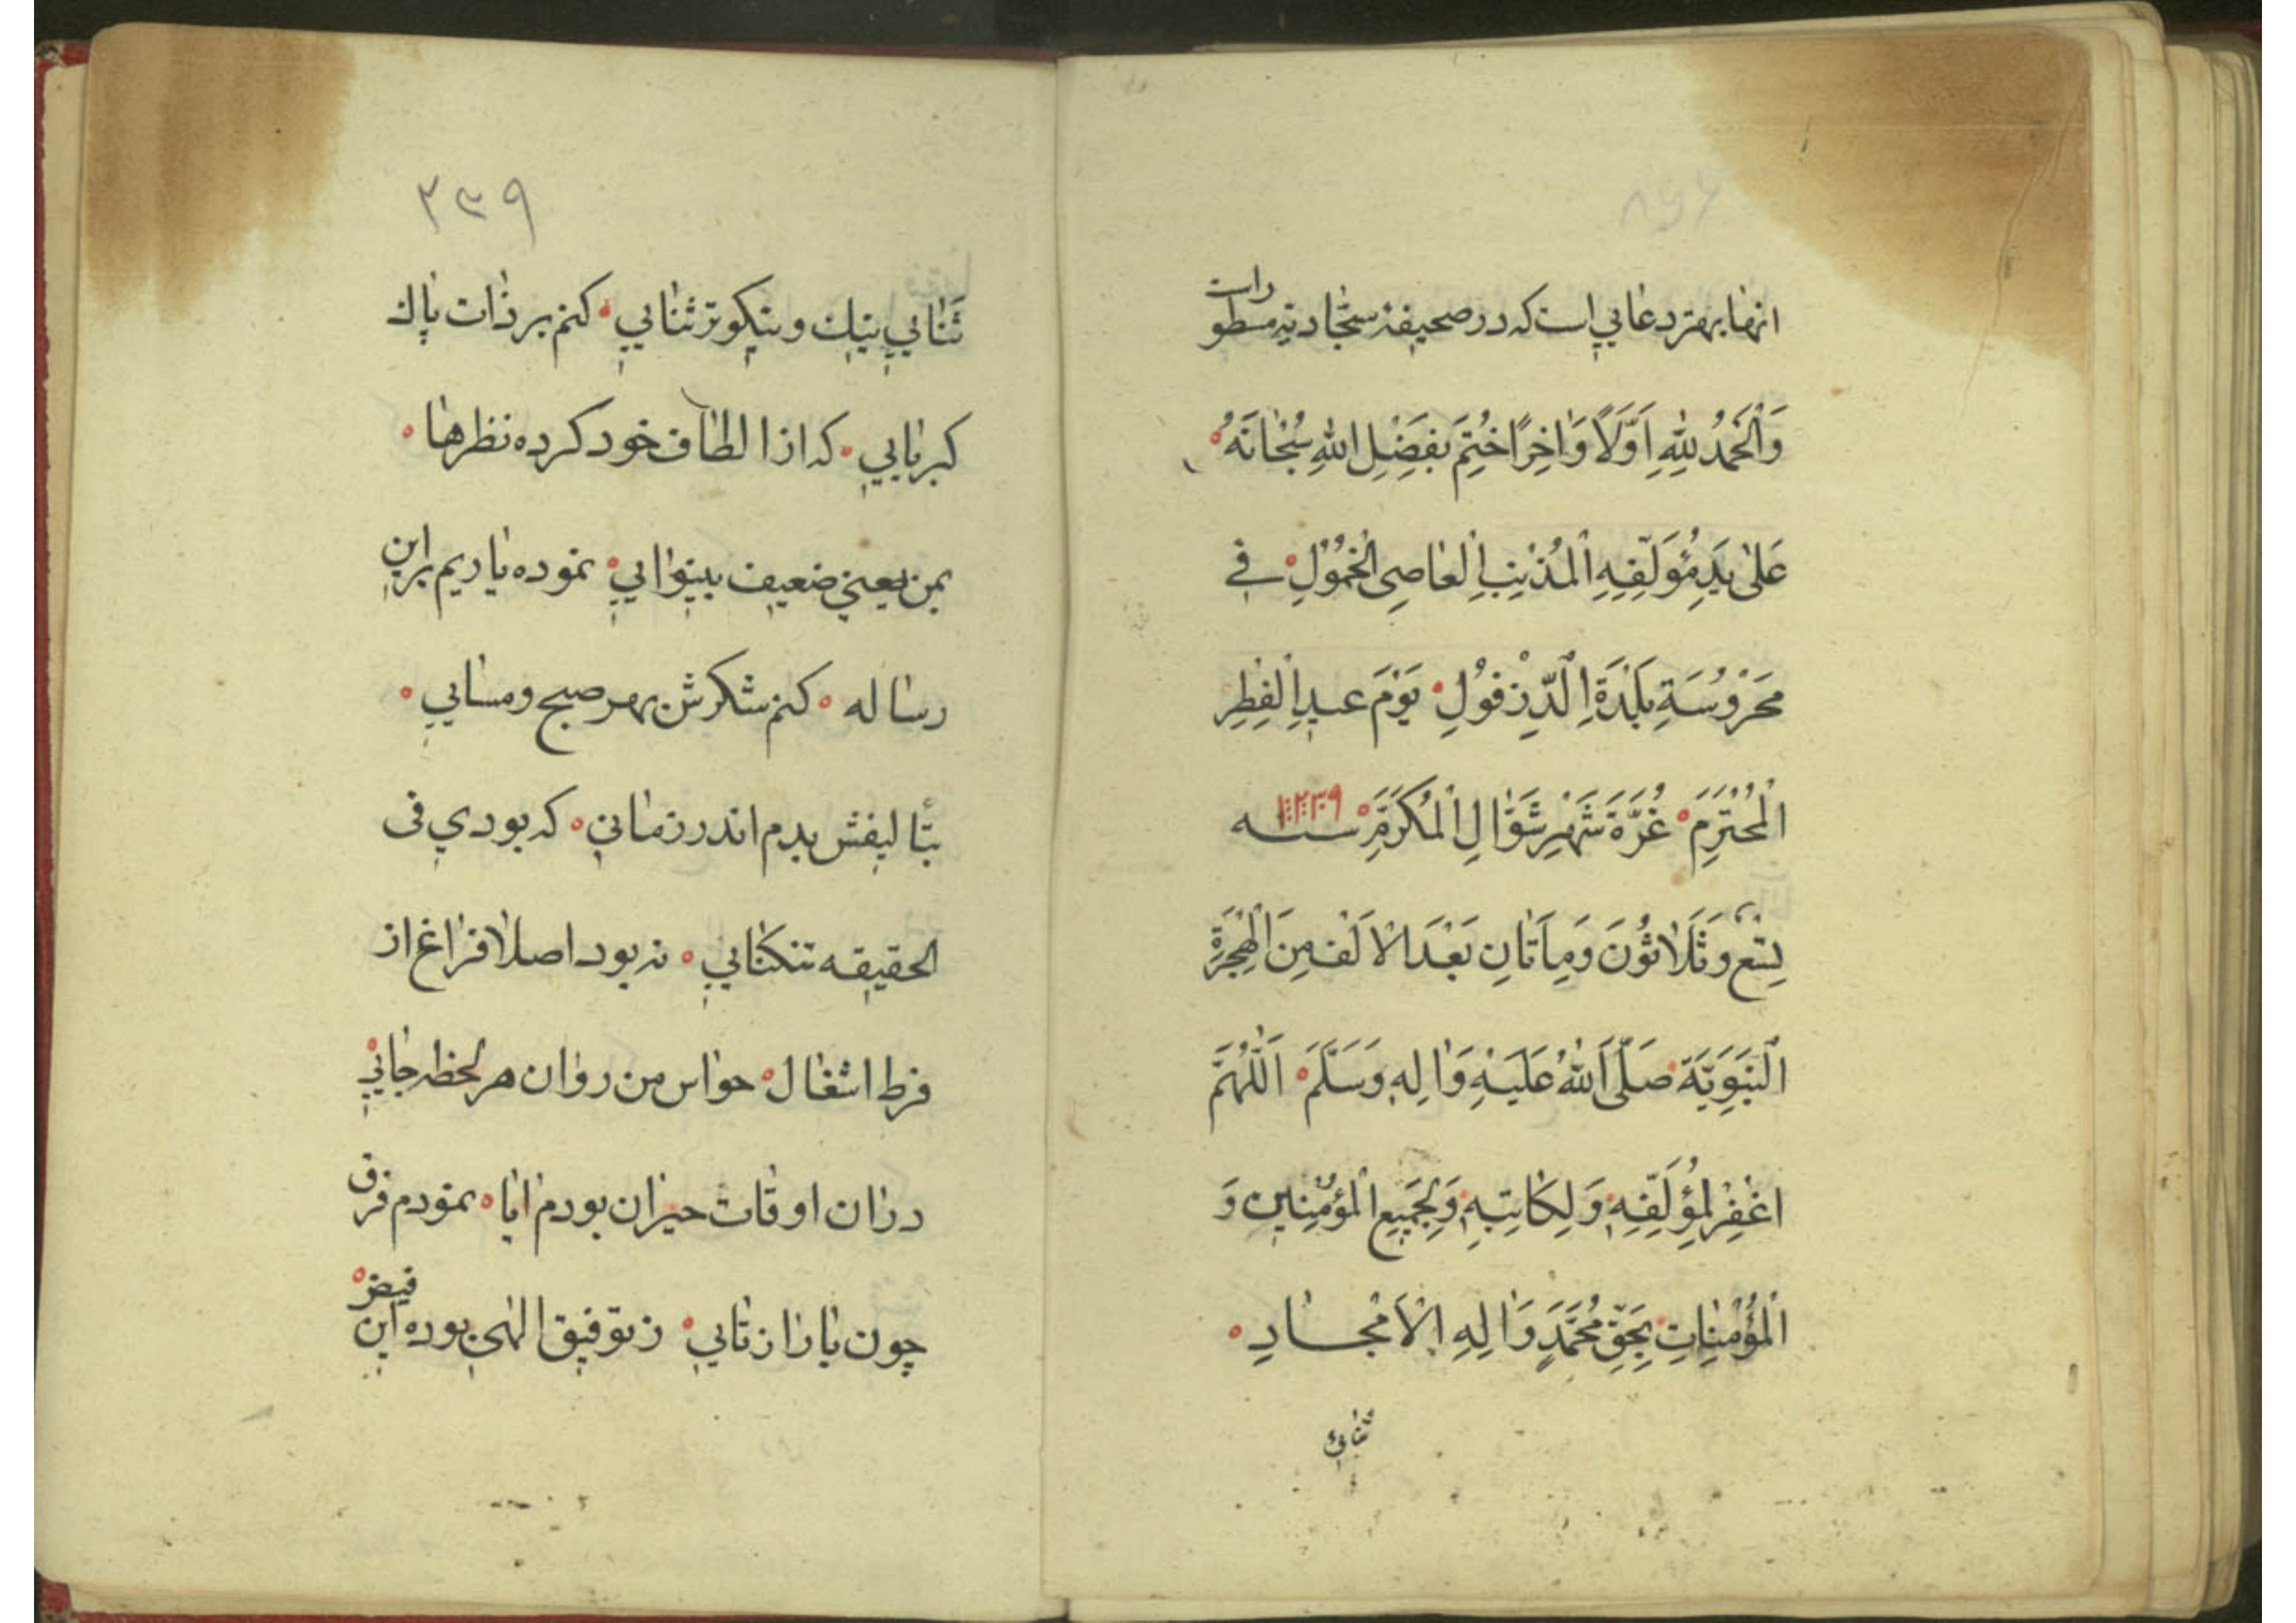 انها بهتر دعائي است که در صحیفهٔ سجّادیّه مسطوراست
وَالْحَمْدُ لِلّٰهِ اَوَّلًا وَاٰخِرًا خُتِمَ بِفَضْلِ اللّٰهِ سُبْحٰانَهُ
عَلیٰ یَدِ مُؤَلِّفِهِ الْمُذْنِبِ الْعٰاصِی الْخَمُوْلِ فے
مَحْرُوْسَةِ بَلْدَةِ الدِّزْفُوْلِ یَوْمَ عیدِ الْفِطْرِ
الْمُحْتَرَمِ غُرَّةَ شَهْرِ شَوّٰالِ الْمُکَرَّمَةِ سنه ۱۲۳۹
تِسْع وَثَلٰاثُوْنَ وَمِاَتٰانِ بَعْدَ الْاَلْف مِنَ الْهِجْرَةِ
النَّبَوِیَّة صَلَّی اللّٰهُ عَلَیْهِ وَاٰلِهِ وَسَلَّمَ اَللّٰهُمَّ
اغْفِرْ لِمُؤَلِّفِهِ وَلِکٰاتِبِهِ وَلِجَمِیْعِ الْمُؤْمِنِین وَ
الْمُؤْمِنٰاتِ بِحَقِّ مُحَمَّدٍ وَاٰلِهِ الْاَمْجٰادِ
ثنائي
۳۳۹
ثَنائي نیك و نیکوتر ثنائي کنم بر ذات پاك
کبریائي که از الطاف خود کرده نظرها
بمن یعني ضعیف بینوائي نموده یاریم بر این
رساله کنم شکرش بهر صبح و مسائي
بتألیفش بدم اندر زماني که بودي فی
الحقیقه تنکنائي نه بود اصلا فراغ از
فرط اشغال حواس من روان هر لحظه جائي
دران اوقات حیران بودم ایا نمودم فرق
چون یا را ز تائي ز توفیق الهی بوده این فیض